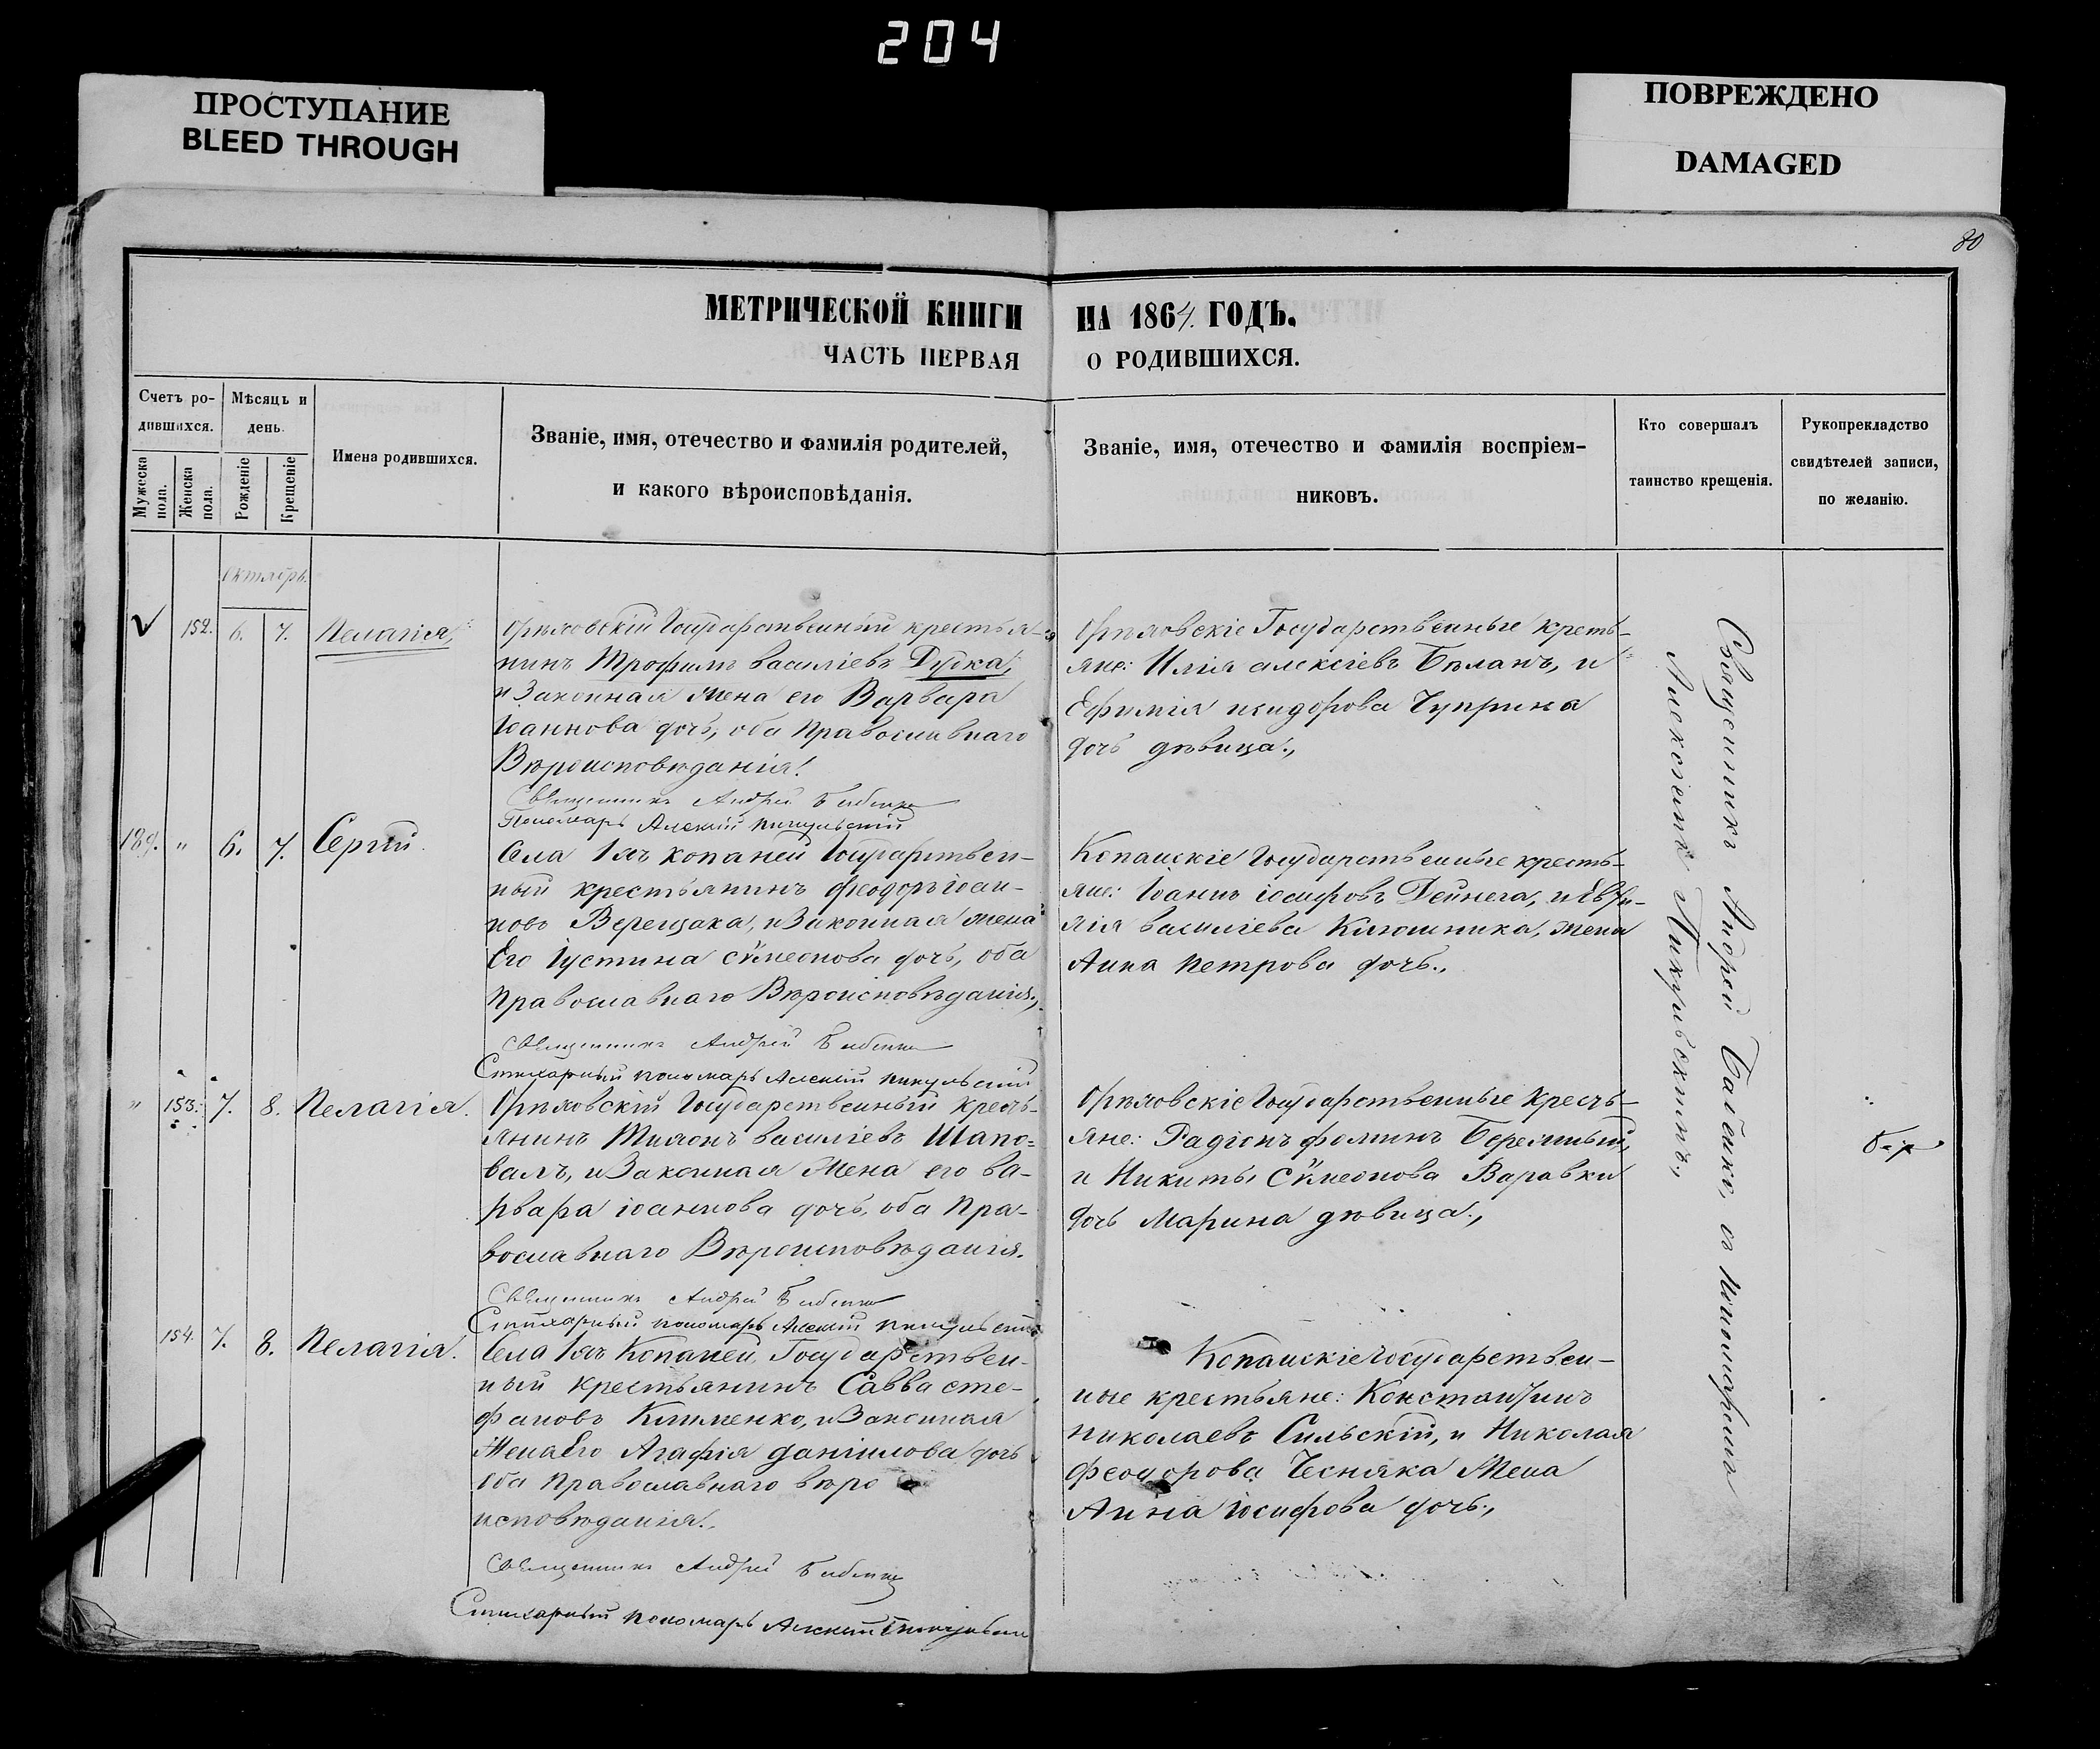 204
ПРОСТУПАНИЕ
BLEED THROUGH
ПОВРЕЖДЕНО
DAMAGED
80
МЕТРИЧЕСКОЙ КНИГИ НА 1864. ГОДЪ.
ЧАСТЬ ПЕРВАЯ О РОДИВШИХСЯ.
Счетъ ро-
дившихся.
Мужеска
пола.
Женска
пола.
Мѣсяцъ и
день.
Рожденіе
Крещеніе
Имена родившихся.
Званіе, имя, отечество и фамилія родителей,
и какого вѣроисповѣданія.
Званіе, имя, отечество и фамилія воспріем-
никовъ.
Кто совершалъ
таинство крещенія.
Рукопрекладство
свидѣтелей записи,
по желанію.
Октябрь.
152. 6. 7. Пелагія,
Орѣловскій Государственный крестья-
нинъ Трофимъ Василіевъ Дудка,
и Законная Жена его Варвара
Іоаннова дочь, оба Православнаго
Вѣроисповѣданія.
Священникъ Андрей Бабенко
Пономарь Алексій Пикульскій
Орѣловскіе Государственные кресть-
яне: Илія Алексіевъ Бѣланъ, и
Ефимія Исидорова Чуприна
дочь дѣвица.,
189. " 6. 7. Сергій.
Села Ігъ Копаней Государствен-
ный крестьянинъ Феодоръ Іоан-
новъ Верещака, и Законная Жена
Его Іустина Сѵмеонова дочь, оба
Православнаго Вѣроисповѣданія.,
Священникъ Андрей Бабенко
Стихарный пономарь Алексій Пикульскій
Копанскіе Государственные кресть-
яне: Іоаннъ Іосифовъ Дейнега, и
Василіева жена
Анна Петрова дочь.,
" 153. 7. 8. Пелагія.
Орѣловскій Государственный кресть-
янинъ Василіевъ Шапо-
валъ, и Законная Жена его Ва-
рвара Іоаннова дочь, оба Пра-
вославнаго Вѣроисповѣданія.
Священникъ Андрей Бабенко
Стихарный пономарь Алексій Пикульскій
Орѣловскіе Государственные Кресть-
яне: Радіонъ Фоминъ
и Никиты Сѵмеонова Варавки
дочь Марина дѣвица.,
154. 7. 8. Пелагія.
Села Ігъ Копаней, Государствен-
ный крестьянинъ Савва Сте-
фановъ Клименко, и Законная
Жена Его Агафія Даніилова дочь
оба Православнаго вѣро
исповѣданія.
Священникъ Андрей Бабенко
Стихарный пономарь Алексій Пикульскій
Копанскіе Государствен-
ные крестьяне: Константинъ
Николаевъ Сильскій, и Николая
Феодорова Чесняка Жена
Анна Іосифова дочь.,
Священникъ Андрей Бабенко, съ пономаремъ
Алексіемъ Пикульскимъ.,